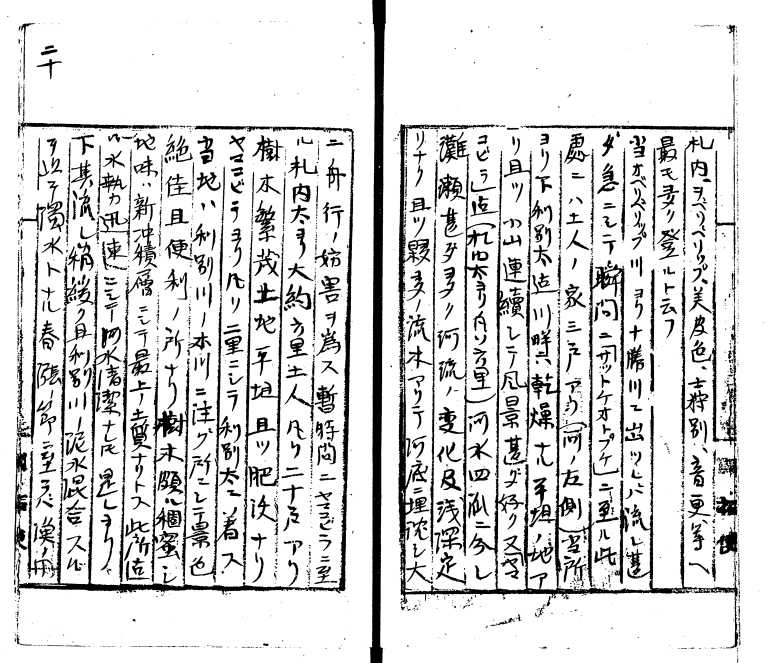 札内、ヲベリベリップ、美皮色、士狩別、音更、等ヘ
最モ多ク登ルト云フ
当オベリベリップ川ヨリ十勝川エ出ツレハ流レ甚
ダ急ニシテ瞬間ニ「サットケオトプケ」ニ至ル此
処ニハ土人ノ家三戸アリ(河ノ左側)当所
ヨリ下利別太迄川畔ハ乾燥ナル平坦ノ地ア
リ且ツ小山連続シテ風景甚ダ好ク又「ヤマ
コビラ」迄(札内太ヨリ凡ソ六里)河水四派ニ分レ
灘瀬甚ダ多ク河流ノ変化及浅深定
リナク且ツ夥多ノ流木アリテ河底ニ埋沈シ大
二十
ニ舟行ノ妨害ヲ為ス暫時間ニヤマコビラニ至
ル札内太ヨリ大約六里土人凡ソ二十戸アリ
樹木繁茂土地平坦且ツ肥沃ナリ
ヤマコビラヨリ凡ソ二里ニシテ利別太ニ着ス
当地ハ利別川ノ本川ニ注グ所ニシテ景色
絶佳且便利ノ所ナリ樹木頗ル稠密シ
地味ハ新沖積層ニシテ最上ノ土質ナリトス此所迄
ハ水勢迅速ニシテ河水清潔ナレ𪜈是レヨリ
下其流レ稍緩ク且利別川ノ泥水混合スル
ヲ以テ濁水トナル春